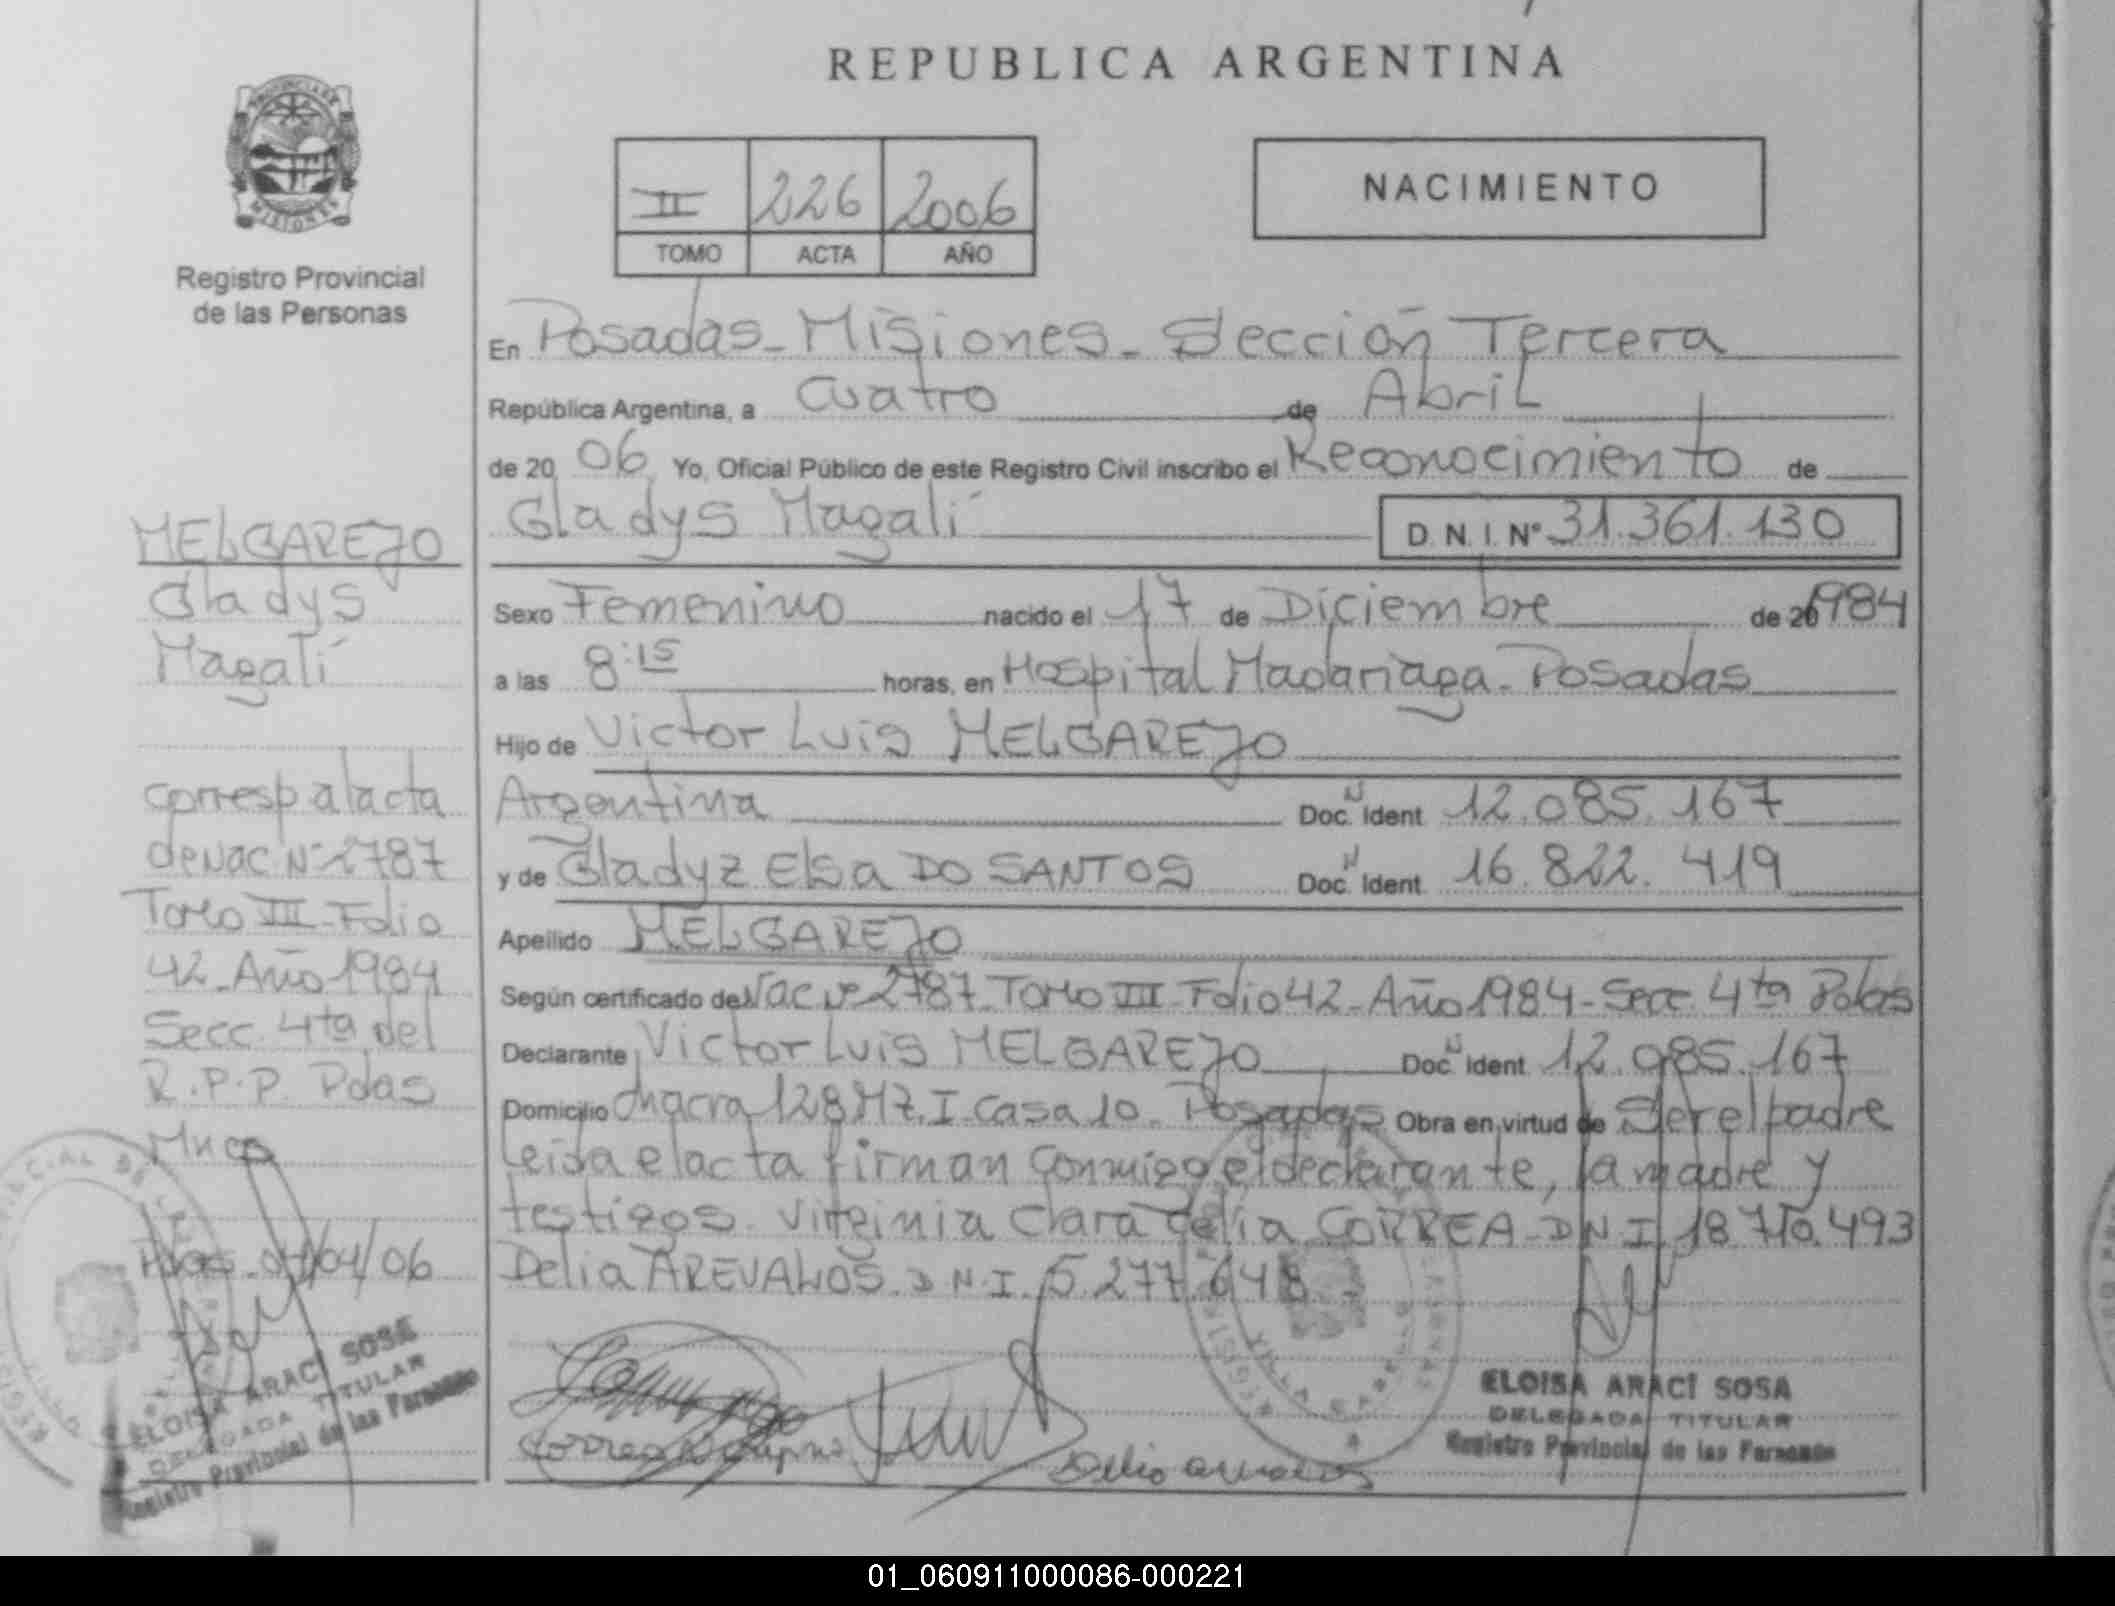 REPUBLICA ARGENTINA
PROVINCIA DE
MISIONES
Registro Provincial
de las Personas
II 226 2006
TOMO ACTA AÑO
NACIMIENTO
En Posadas - Misiones - Sección Tercera
República Argentina, a Cuatro de Abril
de 20 06 Yo, Oficial Público de este Registro Civil inscribo el Reconocimiento de
Gladys Magalí D. N. I. Nº 31.361.130
Sexo Femenino nacido el 17 de Diciembre de 20 1984
a las 8:15 horas, en Hospital Madariaga - Posadas
Hijo de Victor Luis MELGAREJO
Argentina Doc. N Ident 12.085.167
y de Gladyz Elsa DO SANTOS Doc. N Ident 16.822.419
Apellido MELGAREJO
Según certificado de Nac Nº 2787 - Tomo III - Folio 42 - Año 1984 - Secc. 4ta Pdas
Declarante Victor Luis MELGAREJO Doc. N Ident 12.085.167
Domicilio Chacra 128 Mz. I - Casa 10 - Posadas Obra en virtud de Ser el padre
leida el acta firman conmigo el declarante, la madre y
testigos. Virginia Clara Celia CORREA - D N I 18.710.493
Delia AREVALOS. D N I. 5.277.648
MELGAREJO
Gladys
Magalí
corresp al acta
de Nac Nº 2787
Tomo III - Folio
42 - Año 1984
Secc. 4ta del
R.P.P. Pdas
Mnes
Pdas. 04/04/06
ELOISA ARACÍ SOSA
DELEGADA TITULAR
Registro Provincial de las Personas
Correa Virginia
Delia Arevalos
ELOISA ARACÍ SOSA
DELEGADA TITULAR
Registro Provincial de las Personas
01_060911000086-000221